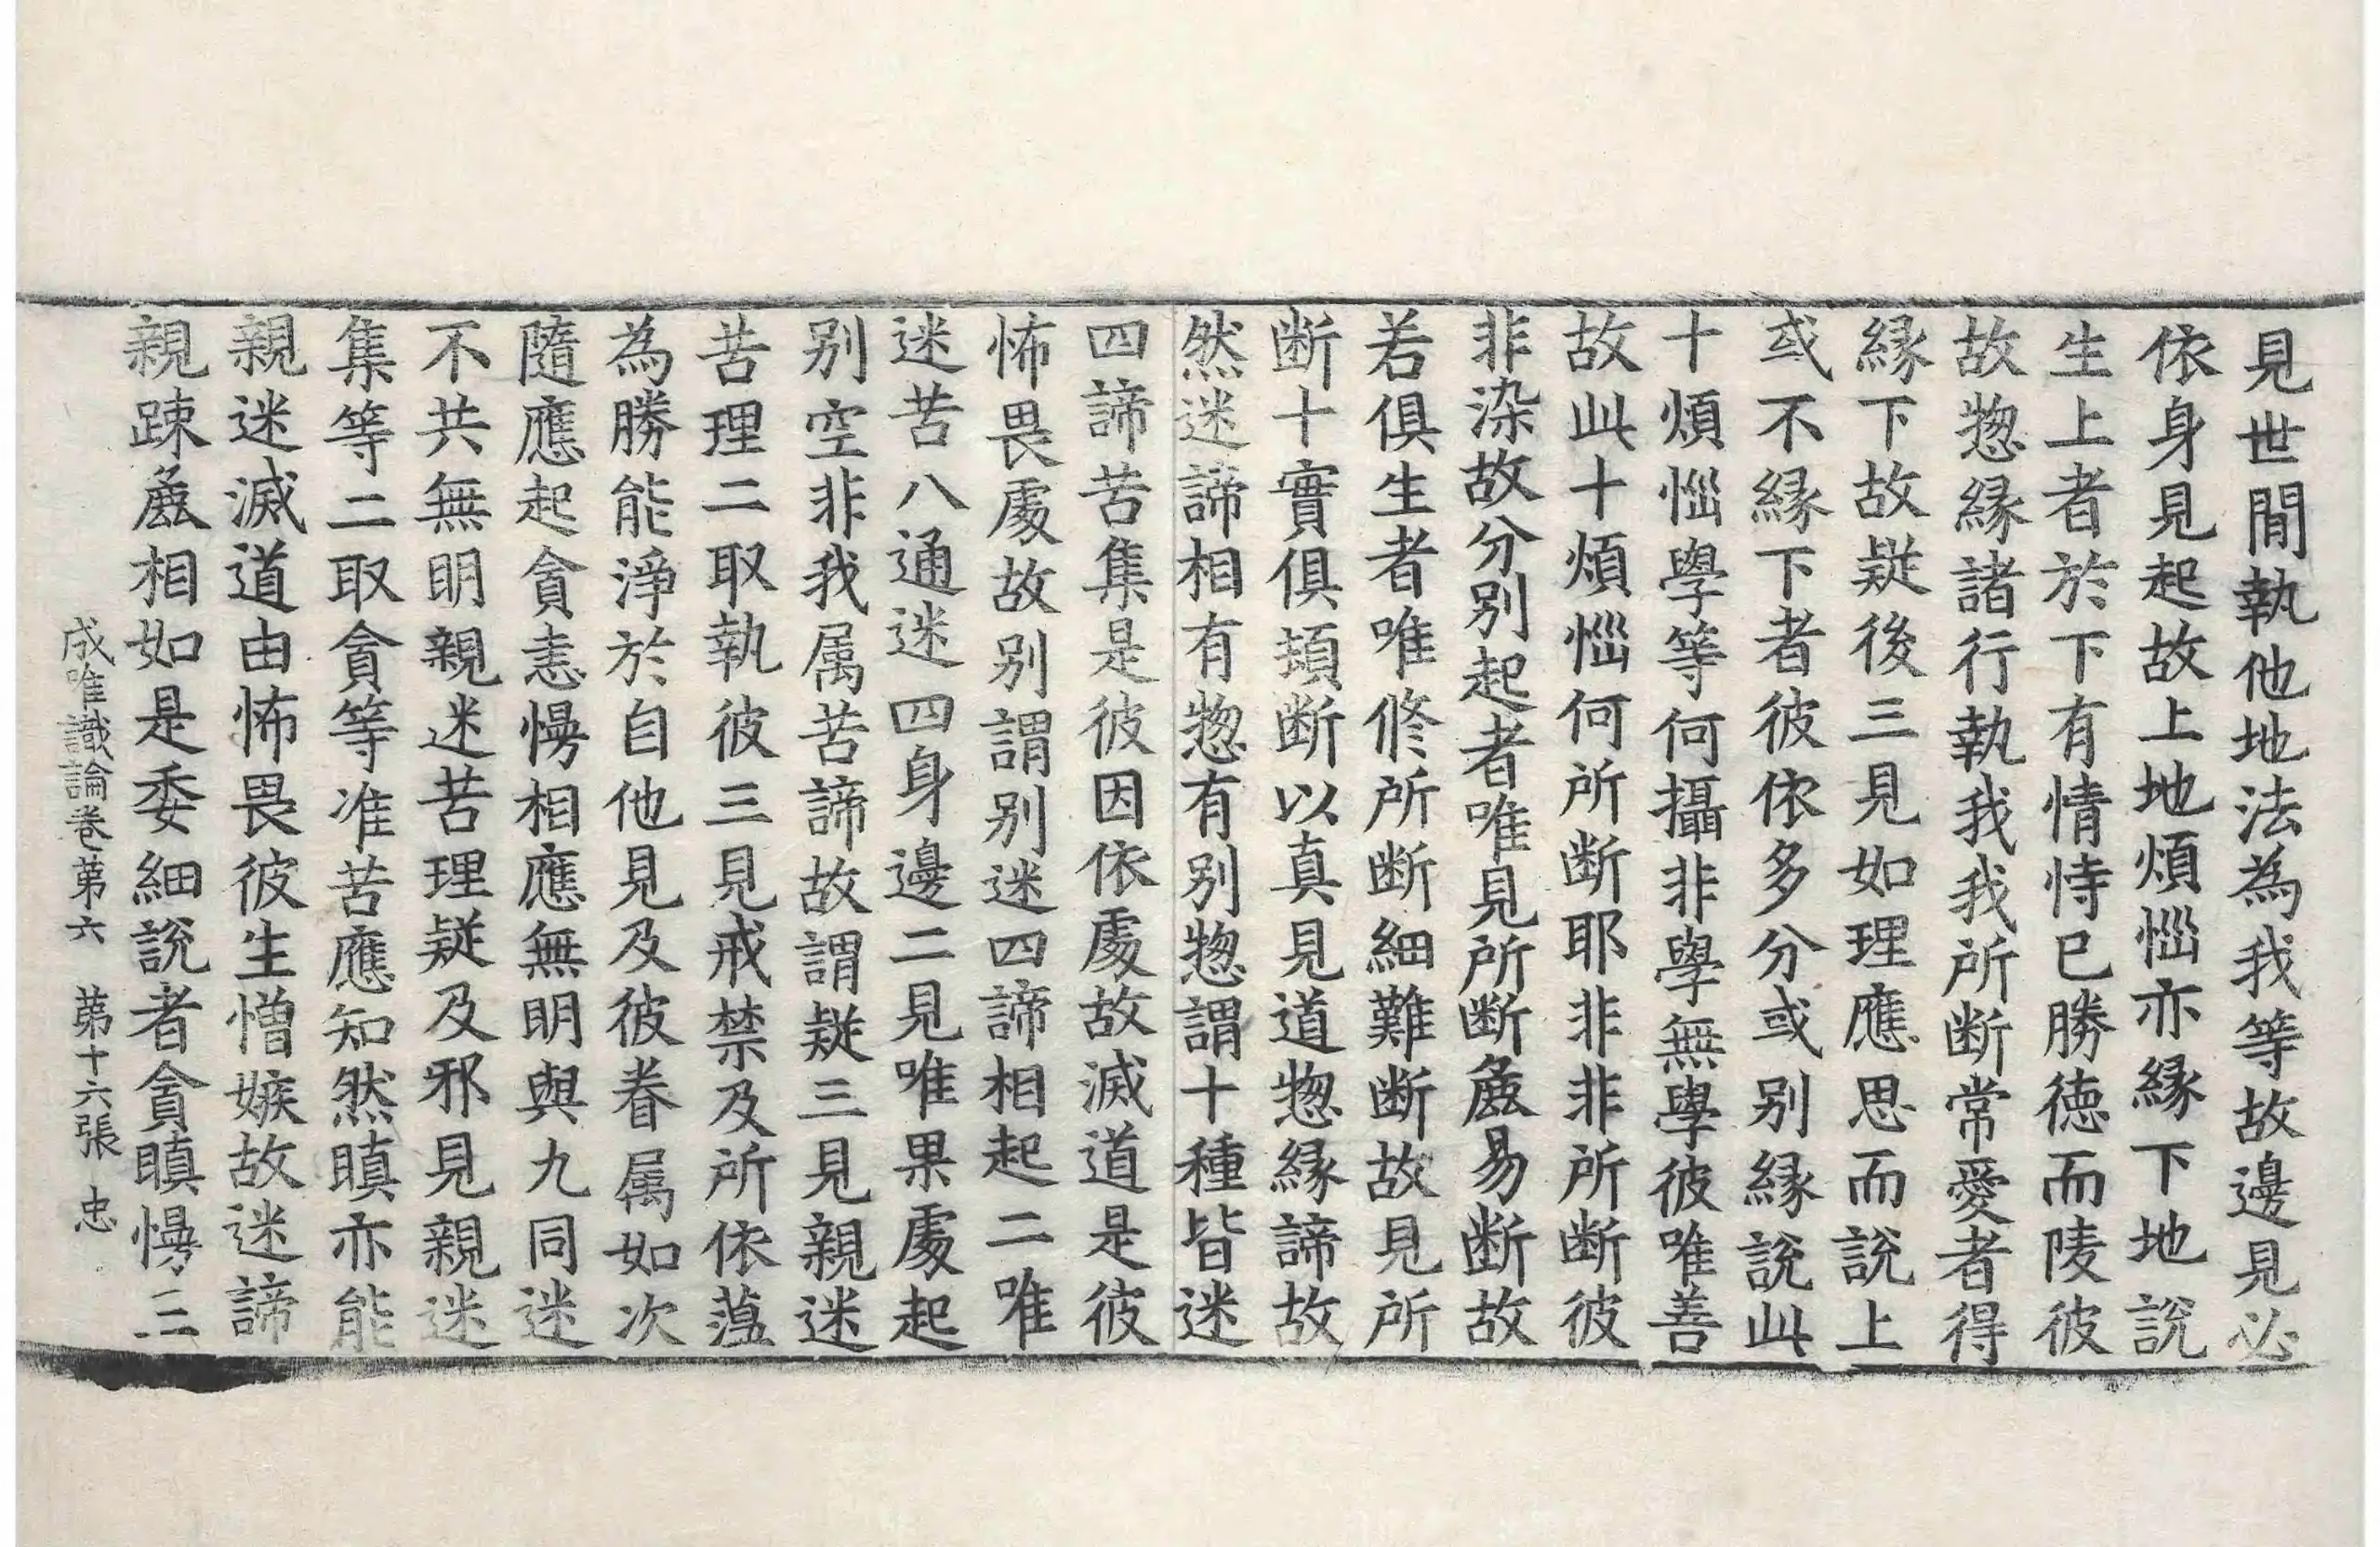 見世間執他地法為我等故邊見必
依身見起故上地煩惱亦緣下地說
生上者於下有情恃已勝德而陵彼
故惣緣諸行執我我所斷常愛者得
緣下故疑後三見如理應思而說上
或不緣下者彼依多分或別緣說此
十煩惱學等何攝非學無學彼唯善
故此十煩惱何所斷耶非非所斷彼
非染故分別起者唯見所斷麁易斷故
若俱生者唯修所斷細難斷故見所
斷十實俱頓斷以真見道惣緣諦故
然迷諦相有惣有別惣謂十種皆迷
四諦苦集是彼因依處故滅道是彼
怖畏處故別謂別迷四諦相起二唯
迷苦八通迷四身邊二見唯果處起
別空非我属苦諦故謂疑三見親迷
苦理二取執彼三見戒禁及所依蕰
為勝能淨於自他見及彼眷属如次
隨應起貪恚慢相應無明與九同迷
不共無明親迷苦理疑及邪見親迷
集等二取貪等准苦應知然瞋亦能
親迷滅道由怖畏彼生憎嫉故迷諦
親踈麁相如是委細說者貪瞋慢三
成唯識論卷苐六 苐十六張 忠